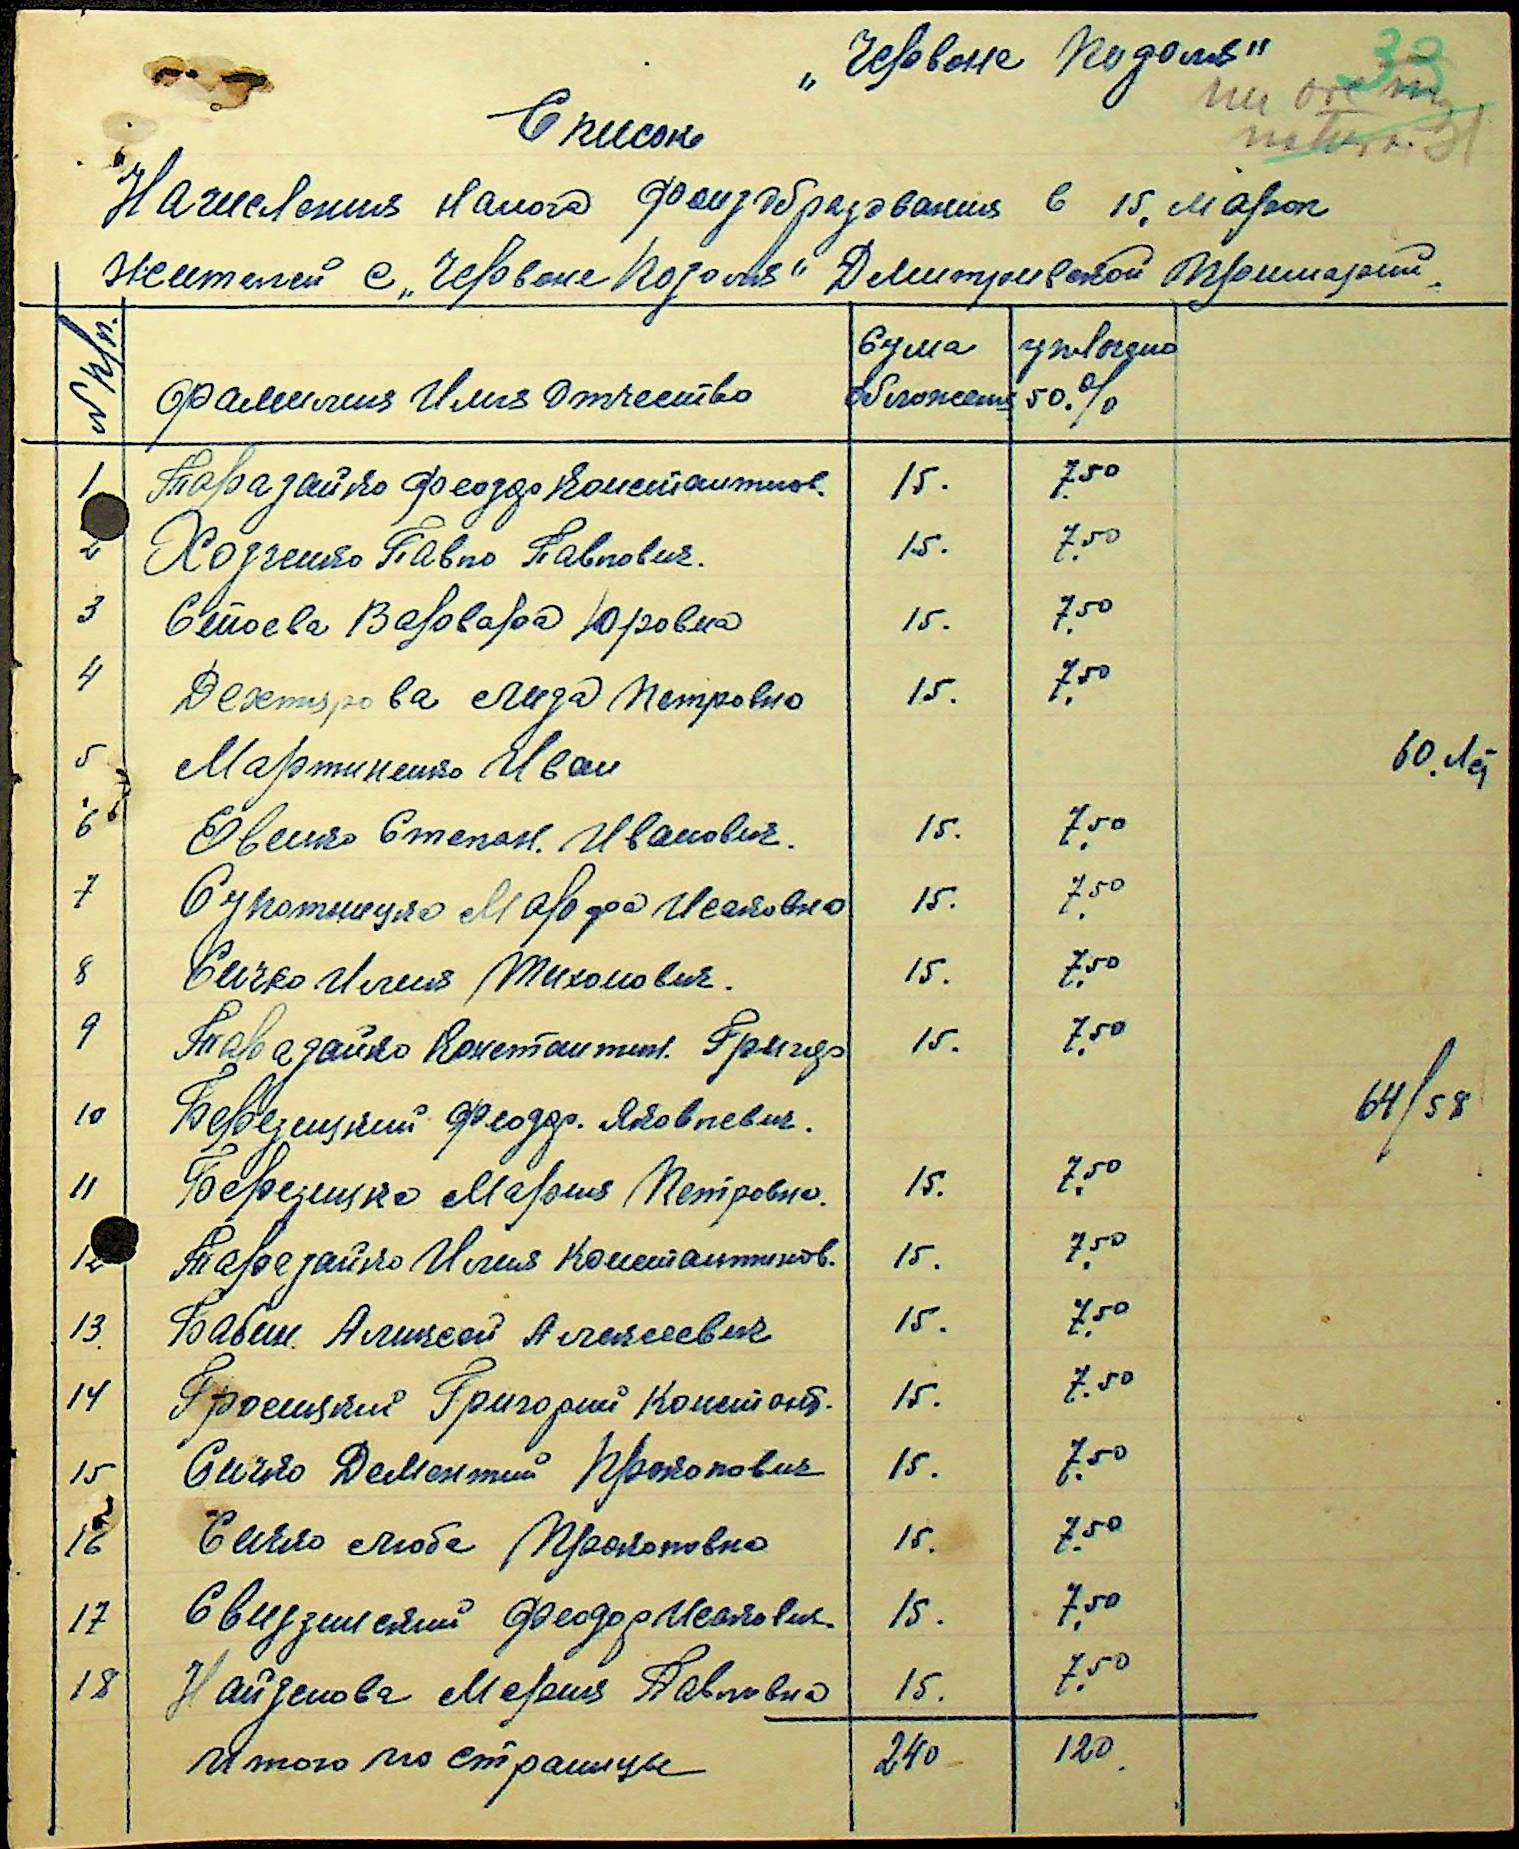 „Червоне Подолия"
33
nu are nr
Список
Начисления налога физобразования в 15. Марок
жителей с „Червоне Подолия" Дмитриевской Примарии.
№ п/п Фамилия Имя Отчество Сума обложения 50.%
1 Тарадайко Феодор Константинов. 15. 7.50
2 Ходченко Павло Павлович. 15. 7.50
3 Стоева Варвара Юровна 15. 7.50
4 Дехтярова Лида Петровно 15. 7.50
5 Мартиненко Иван 60. Лей
6 Овенко Степан. Иванович. 15. 7.50
7 Марфа Исаковно 15. 7.50
8 Сичко Илия Тихонович. 15. 7.50
9 Тарадайко Константин. Григор 15. 7.50
10 Березицкий Феодор. Яковлевич. 64/58
11 Березицка Мария Петровно. 15. 7.50
12 Тарадайко Илия Константинов. 15. 7.50
13. Бабин. Аликсей Алексеевич 15. 7.50
14 Гросицкий Григорий Констант. 15. 7.50
15 Сичко Дементий Прокопович 15. 7.50
16 Сичко Люба Прокоповно 15. 7.50
17 Свидзинский Феодор Исакович. 15. 7.50
18 Найденова Мария Павловна 15. 7.50
Итого по страницы 240 120.